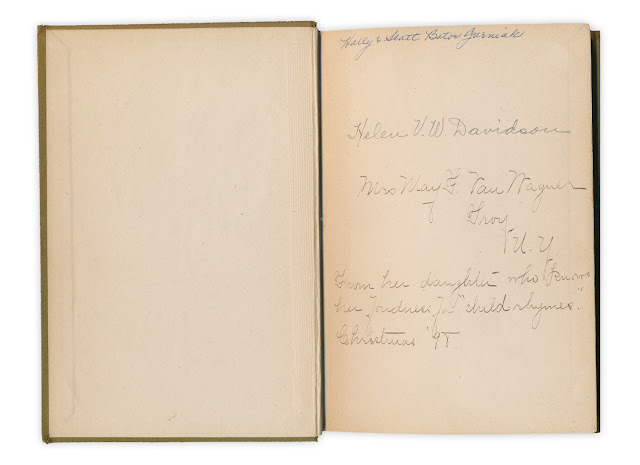 Holly & Scott
Helen V. W. Davidson
Mrs May F. Van Wagner
Troy
N. Y
From her daughter who knows
her fondness for "child rhymes".
Christmas '98